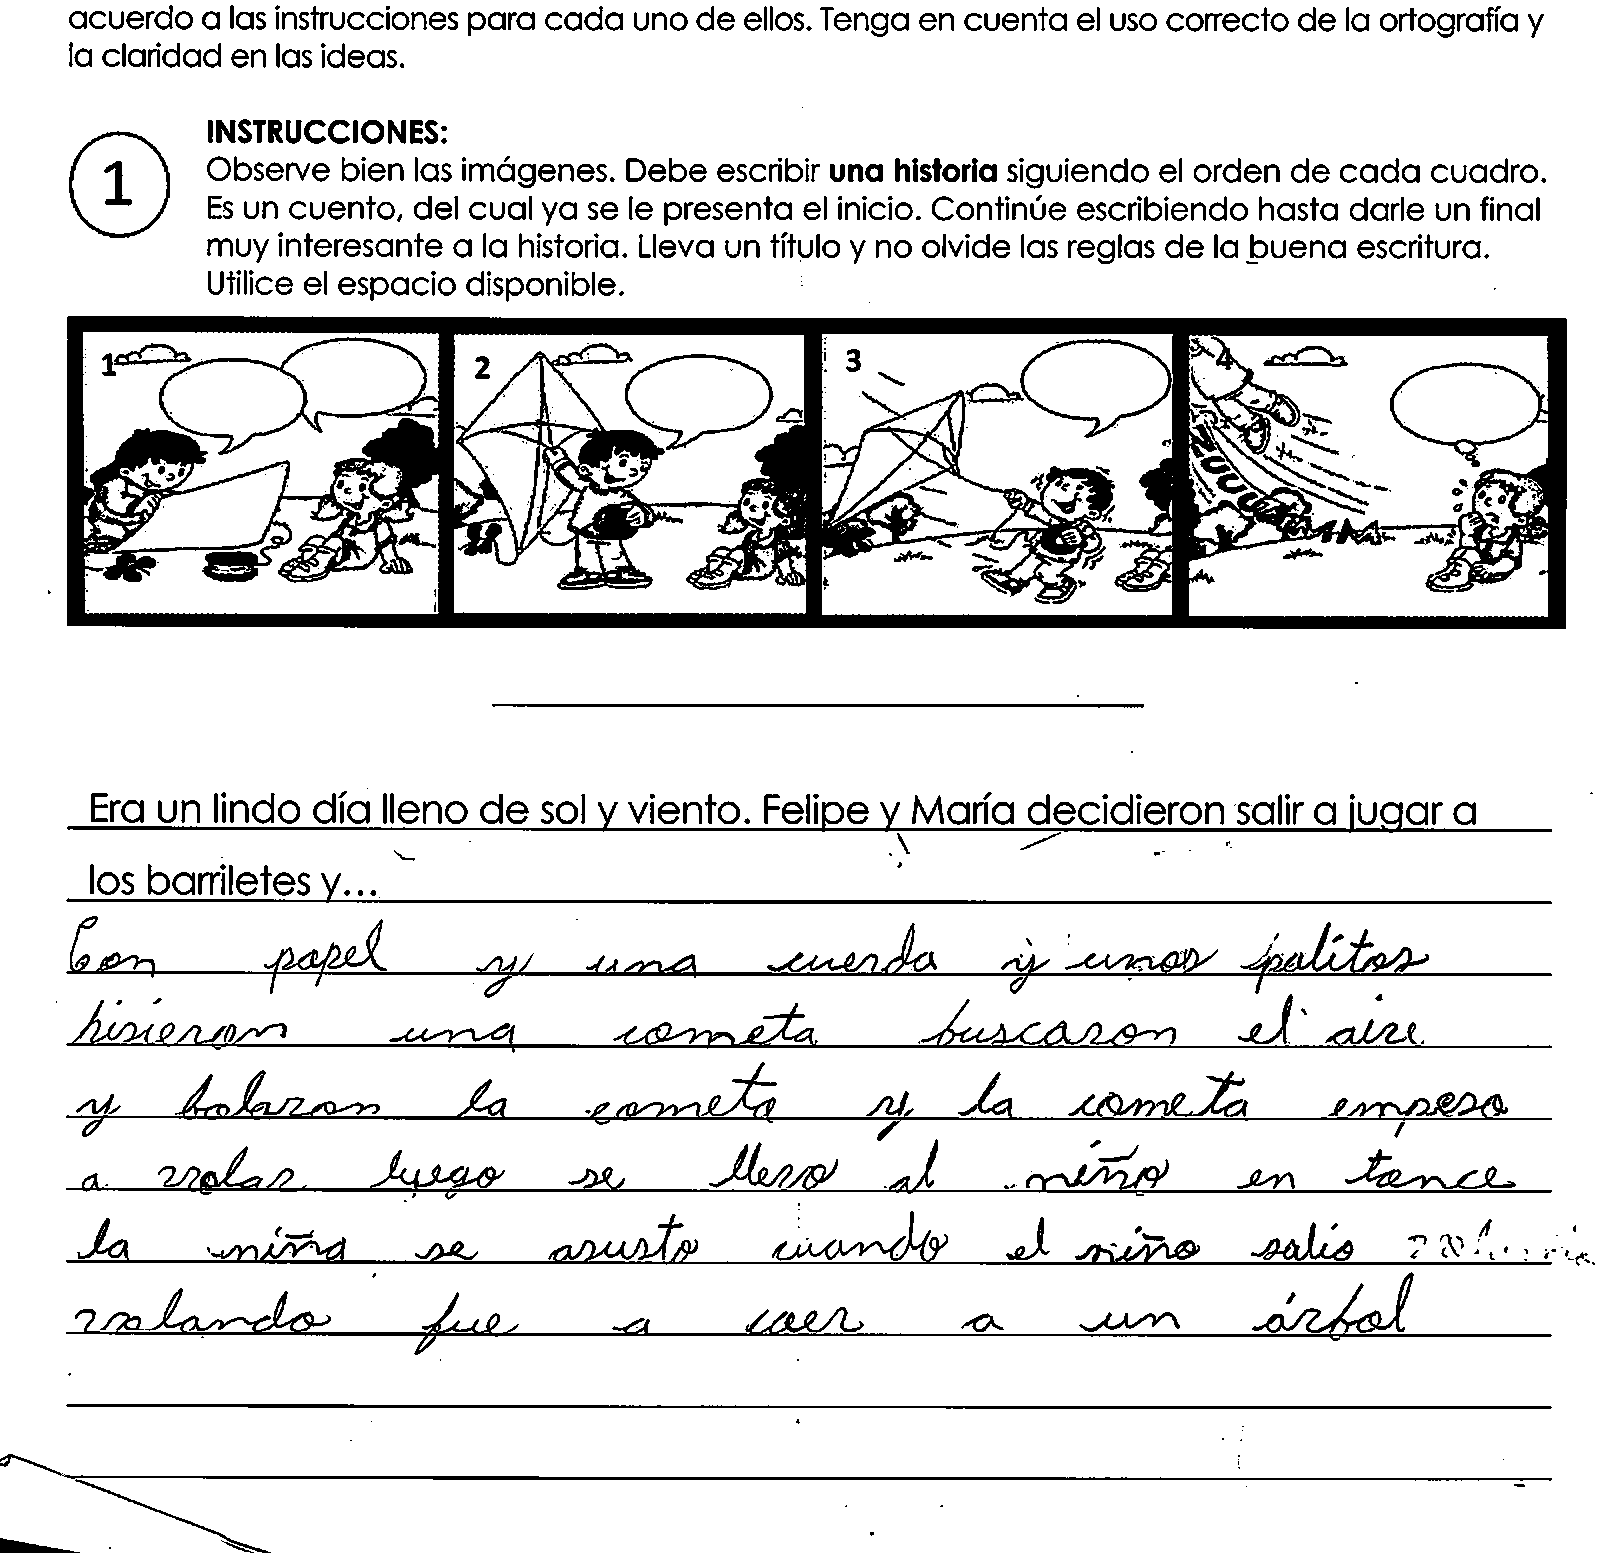 acuerdo a las instrucciones para cada uno de ellos. Tenga en cuenta el uso correcto de la ortografía y
la claridad en las ideas.
1
INSTRUCCIONES:
Observe bien las imágenes. Debe escribir una historia siguiendo el orden de cada cuadro.
Es un cuento, del cual ya se le presenta el inicio. Continúe escribiendo hasta darle un final
muy interesante a la historia. Lleva un título y no olvide las reglas de la buena escritura.
Utilice el espacio disponible.
1 2 3 4
ZUUUUMMM
Era un lindo día lleno de sol y viento. Felipe y María decidieron salir a jugar a
los barriletes y...
Con papel y una cuerda y unos palitos
hisieron una cometa buscaron el aire
y bolaron la cometa y la cometa empeso
a volar luego se llevo al niño en tonce
la niña se asusto cuando el niño salio
volando fue a caer a un árbol